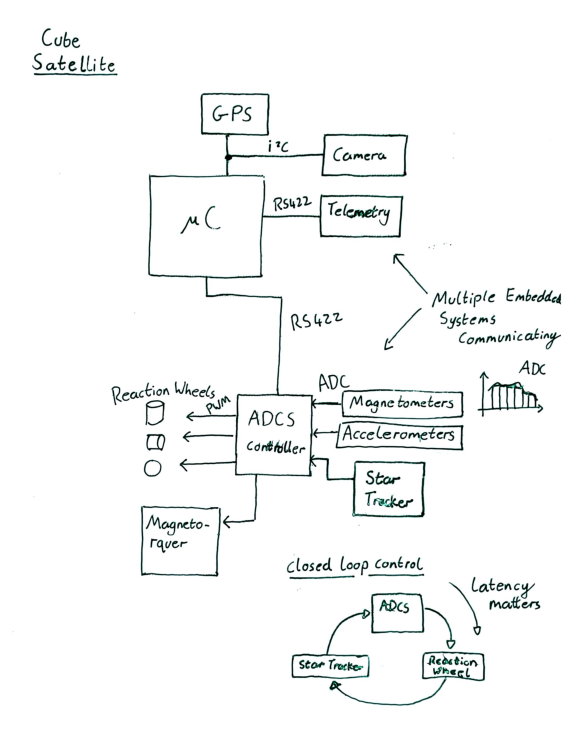 Cube
Satellite
GPS
i²C
Camera
μC
RS422
Telemetry
Multiple Embedded
Systems
Communicating
RS422
ADC
Reaction Wheels
PWM
ADC
Magnetometers
ADCS
Controller
Accelerometers
Star
Tracker
Magneto-
rquer
Closed Loop Control
Latency
matters
ADCS
Star Tracker
Reaction
Wheel